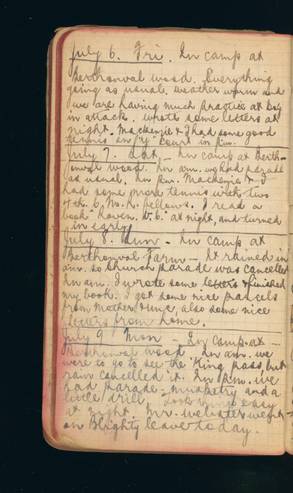 July 6. Fri. In camp at
Berthonval wood. Everything
going as usual, weather warm and
we are having much practice at Bay
in attack. wrote some letters at
night. Mackenzie & I had some good
tennis on "g" Court in p.m.
July 7. Sat. - In camp at Berth-
onval wood. In a.m. we had parade
as usual. In p.m. Mackenzie & I
had some more tennis with two
4th fellows. I read a
book at night, and turned
in early.
July 8. Sun - In camp at
Berthonval Farm - It rained in
a.m. so Church parade was cancelled
in a.m. I wrote some letters & finished
my book. I got some nice parcels
from Mother also some nice
letters from home.
July 9 Mon - In camp at
Berthonval wood In a.m. we
were to go to see the King pass, but
rain cancelled it. In p.m. we
had parade - musketry and a
little drill. Took things easy
at night. Mr. Webster went
on Blighty leave today.